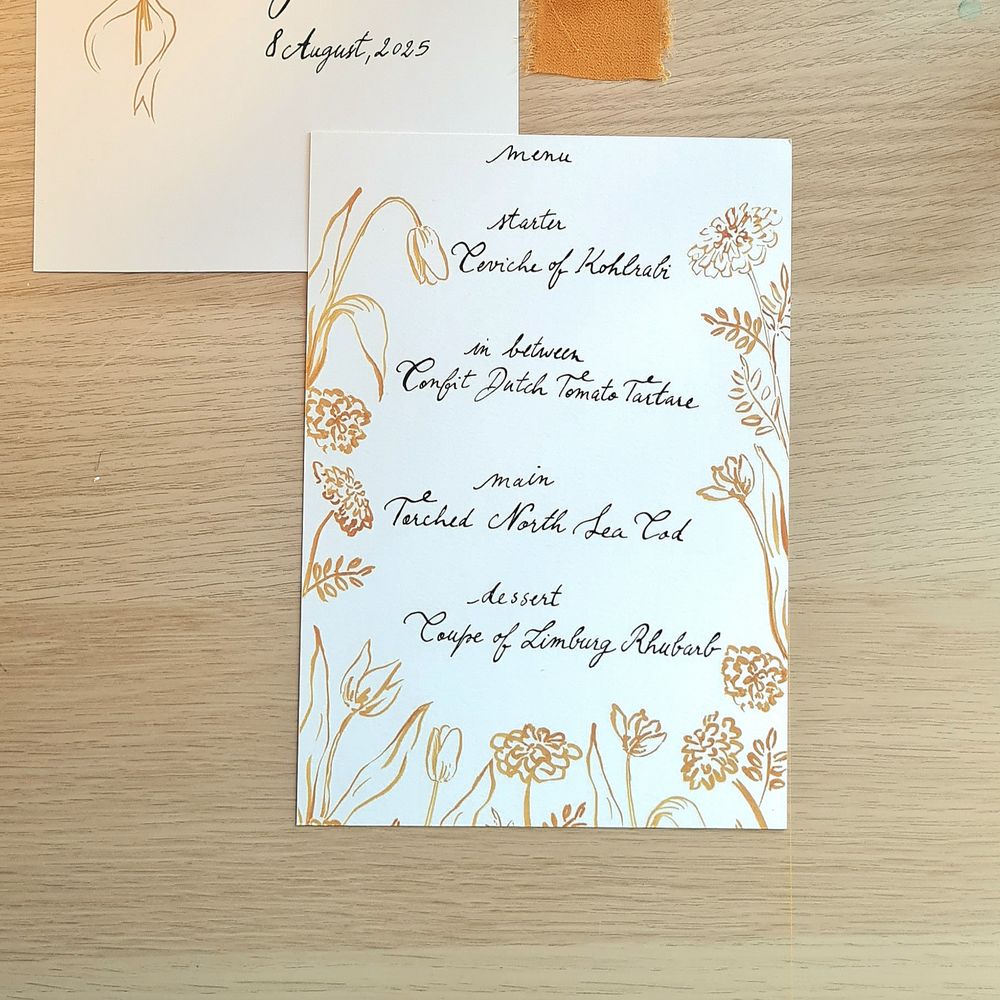 8 August, 2025
menu
starter
Ceviche of Kohlrabi
in between
Confit Dutch Tomato Tartare
main
Torched North Sea Cod
dessert
Coupe of Limburg Rhubarb